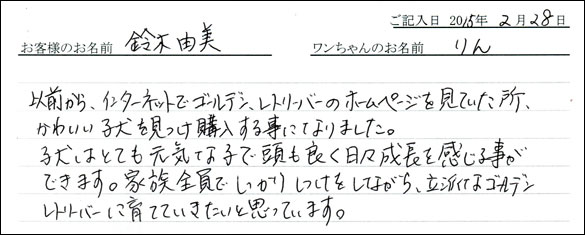 ご記入日 2015年 2月 28日
お客様のお名前 鈴木由美 ワンちゃんのお名前 りん
以前から、インターネットでゴールデン、レトリーバーのホームページを見ていた所、
かわいい子犬を見つけ購入する事になりました。
子犬はとても元気な子で頭も良く日々成長を感じる事が
できます。家族全員でしっかりしつけをしながら、立派なゴールデン
レトリバーに育てていきたいと思っています。